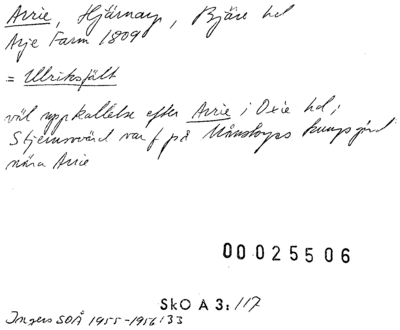 Arrie, Hjärnarp, Bjäre hd
Arje Farm 1809
= Ulriksfält
väl uppkallelse efter Arrie i Oxie hd;
Stjernsvärd var f på Månstorps kungsgård
nära Arrie
00025506
SkO A 3: 117
Ingers SOÅ 1955-1956:33